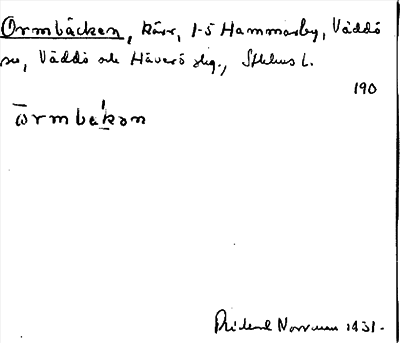 Ormbäcken, kärr, 1-5 Hammarby, Väddö
sn, Väddö och Häverö slg., Sthlms l.
190
ωrmbakən
Rickard Norrman 1931.